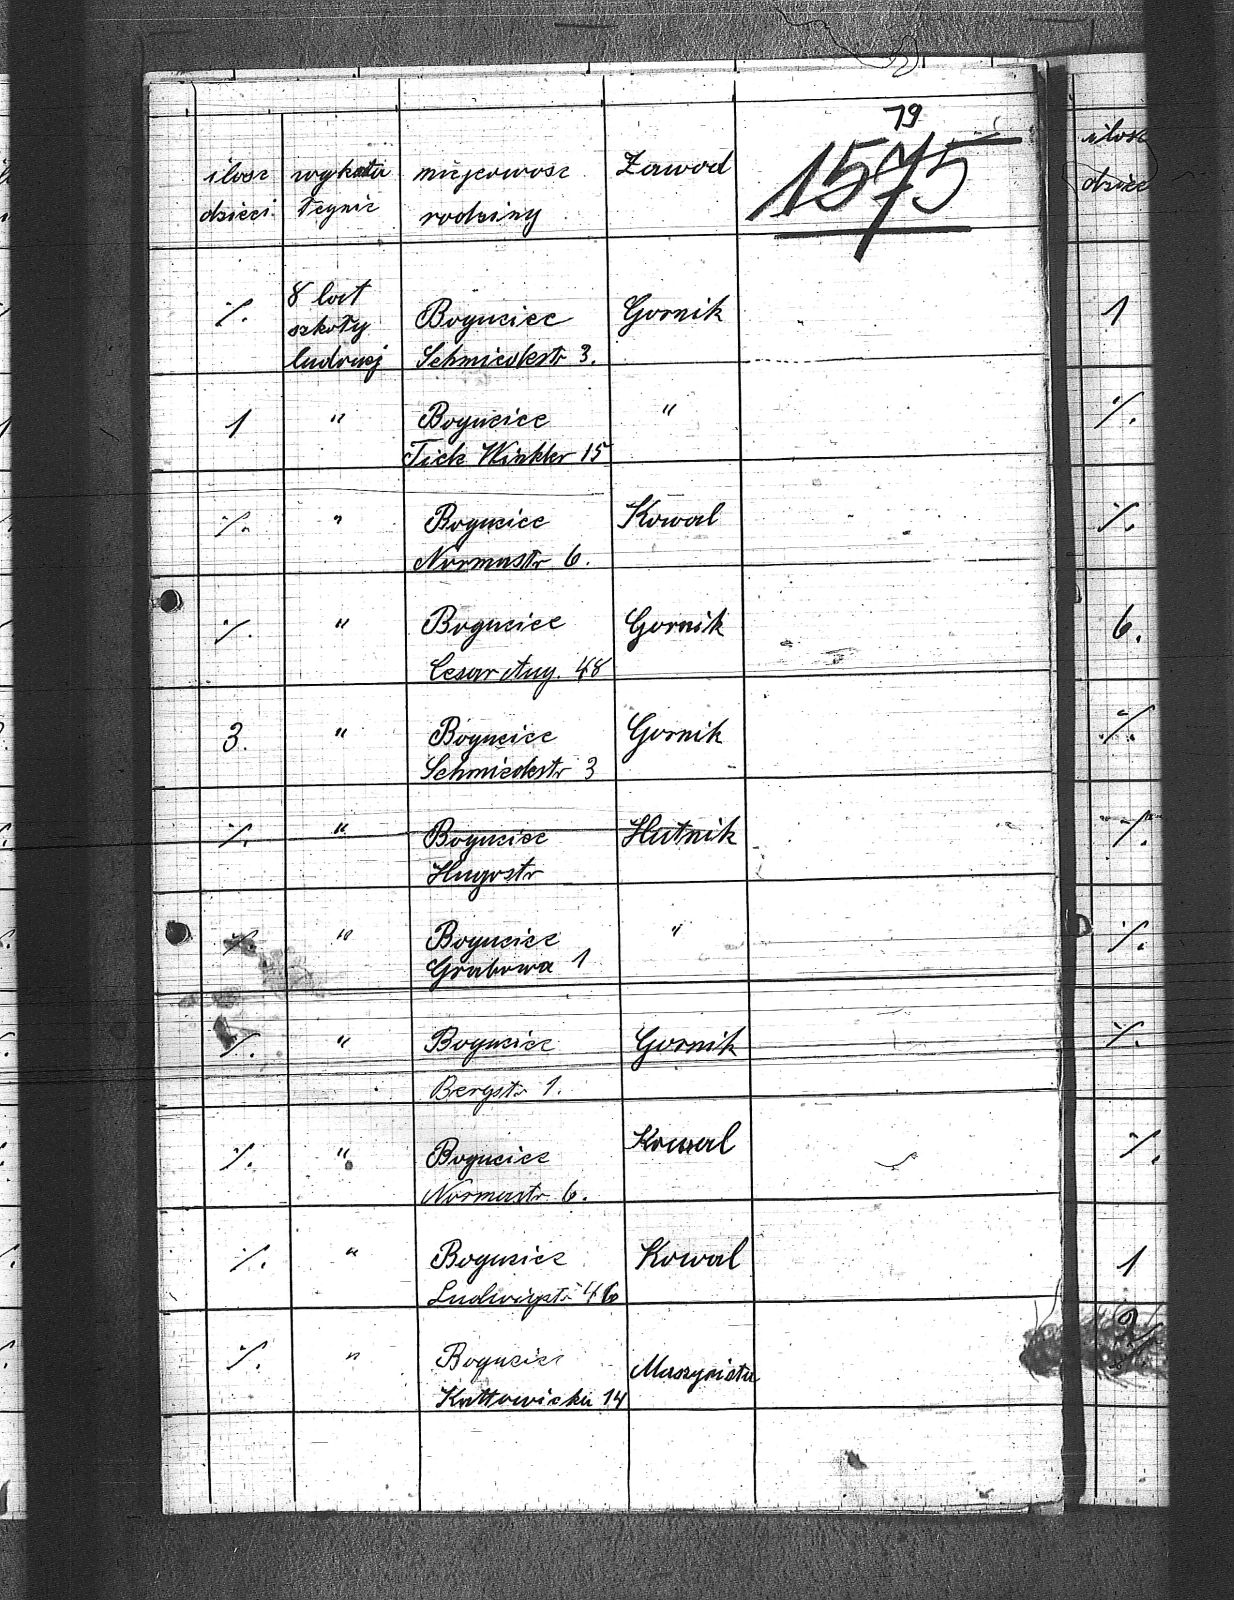 79
1575
ilosc wyksta miejcowosc Zawod
dzieci łcynie rodziny
8 lat
./. szkoły Bogucice Gornik
ludowej Schmiedestr 3.
1 " Bogucice "
Tiele Winkler 15
./. " Bogucice Kowal
Normastr 6.
./. " Bogucice Gornik
Cesar Aug. 48
3. " Bogucice Gornik
Schmiedestr 3
./. " Bogucice Hutnik
Hugostr
./. " Bogucice "
Grabowa 1
./. " Bogucice Gornik
Bergstr 1.
./. " Bogucice Kowal
Normastr 6.
./. " Bogucice Kowal
Ludwigstr 46
./. " Bogucice Maszynista
Kattowicka 14
ilosc
dziec
1
./.
./.
6.
./.
./.
./.
./.
./.
1
2